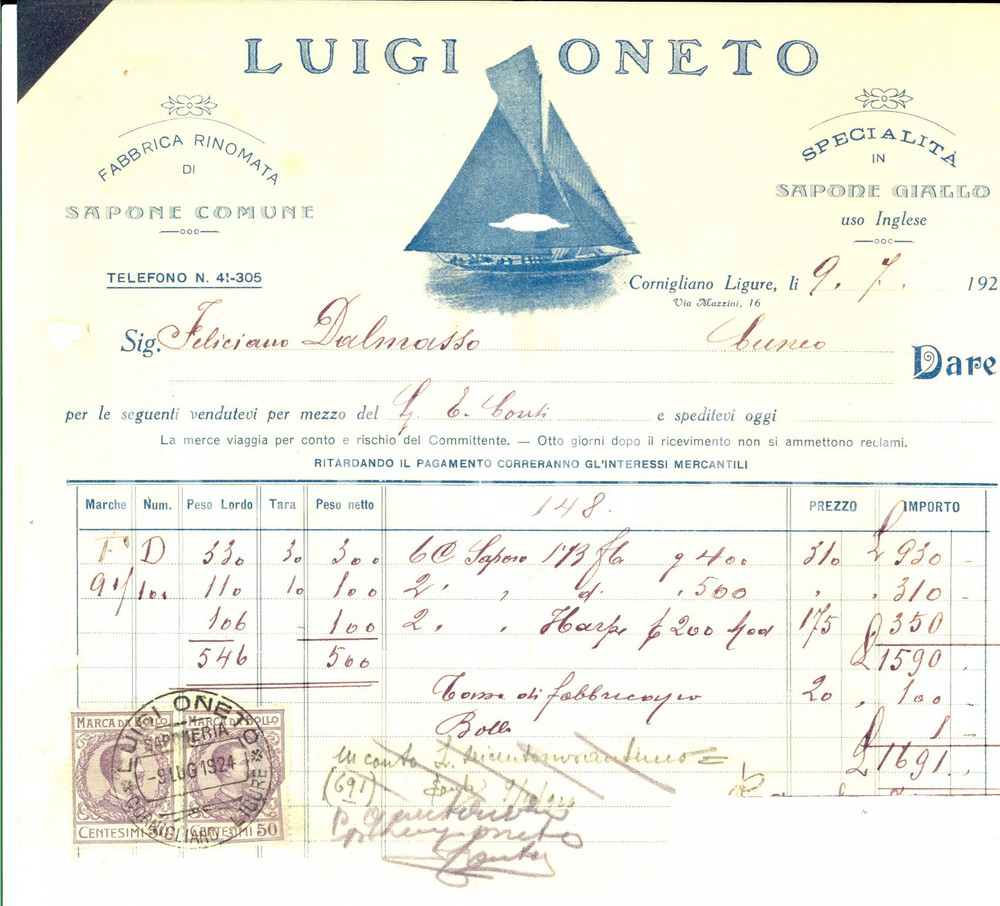 LUIGI ONETO
FABBRICA RINOMATA
DI
SAPONE COMUNE
SPECIALITÀ
IN
SAPONE GIALLO
uso Inglese
TELEFONO N. 41-305
Cornigliano Ligure, li 9. 7. 192
Via Mazzini, 16
Sig. Feliciano Dalmasso Cuneo
Dare
per le seguenti vendutevi per mezzo del G. E. Conti e speditevi oggi
La merce viaggia per conto e rischio del Committente. — Otto giorni dopo il ricevimento non si ammettono reclami.
RITARDANDO IL PAGAMENTO CORRERANNO GL'INTERESSI MERCANTILI
Marche Num. Peso Lordo Tara Peso netto 148. PREZZO IMPORTO
D 330 30 300 6 C Sapone g 400 310 £ 930 -
100 110 10 100 2 " " d. " 500 " " 310 -
106 - 100 2 " " Harpe 200 175 £ 350
546 500 £ 1590 .
Tassa di fabbricazio 20 , 100 .
Bolli 1
£ 1691 .
MARCA DA BOLLO MARCA DA BOLLO
LUIGI ONETO
SAPONERIA
-9 LUG 1924
CORNIGLIANO LIGURE
CENTESIMI 50 CENTESIMI 50
in conto L. seicentonovantuno
(691)
Oneto